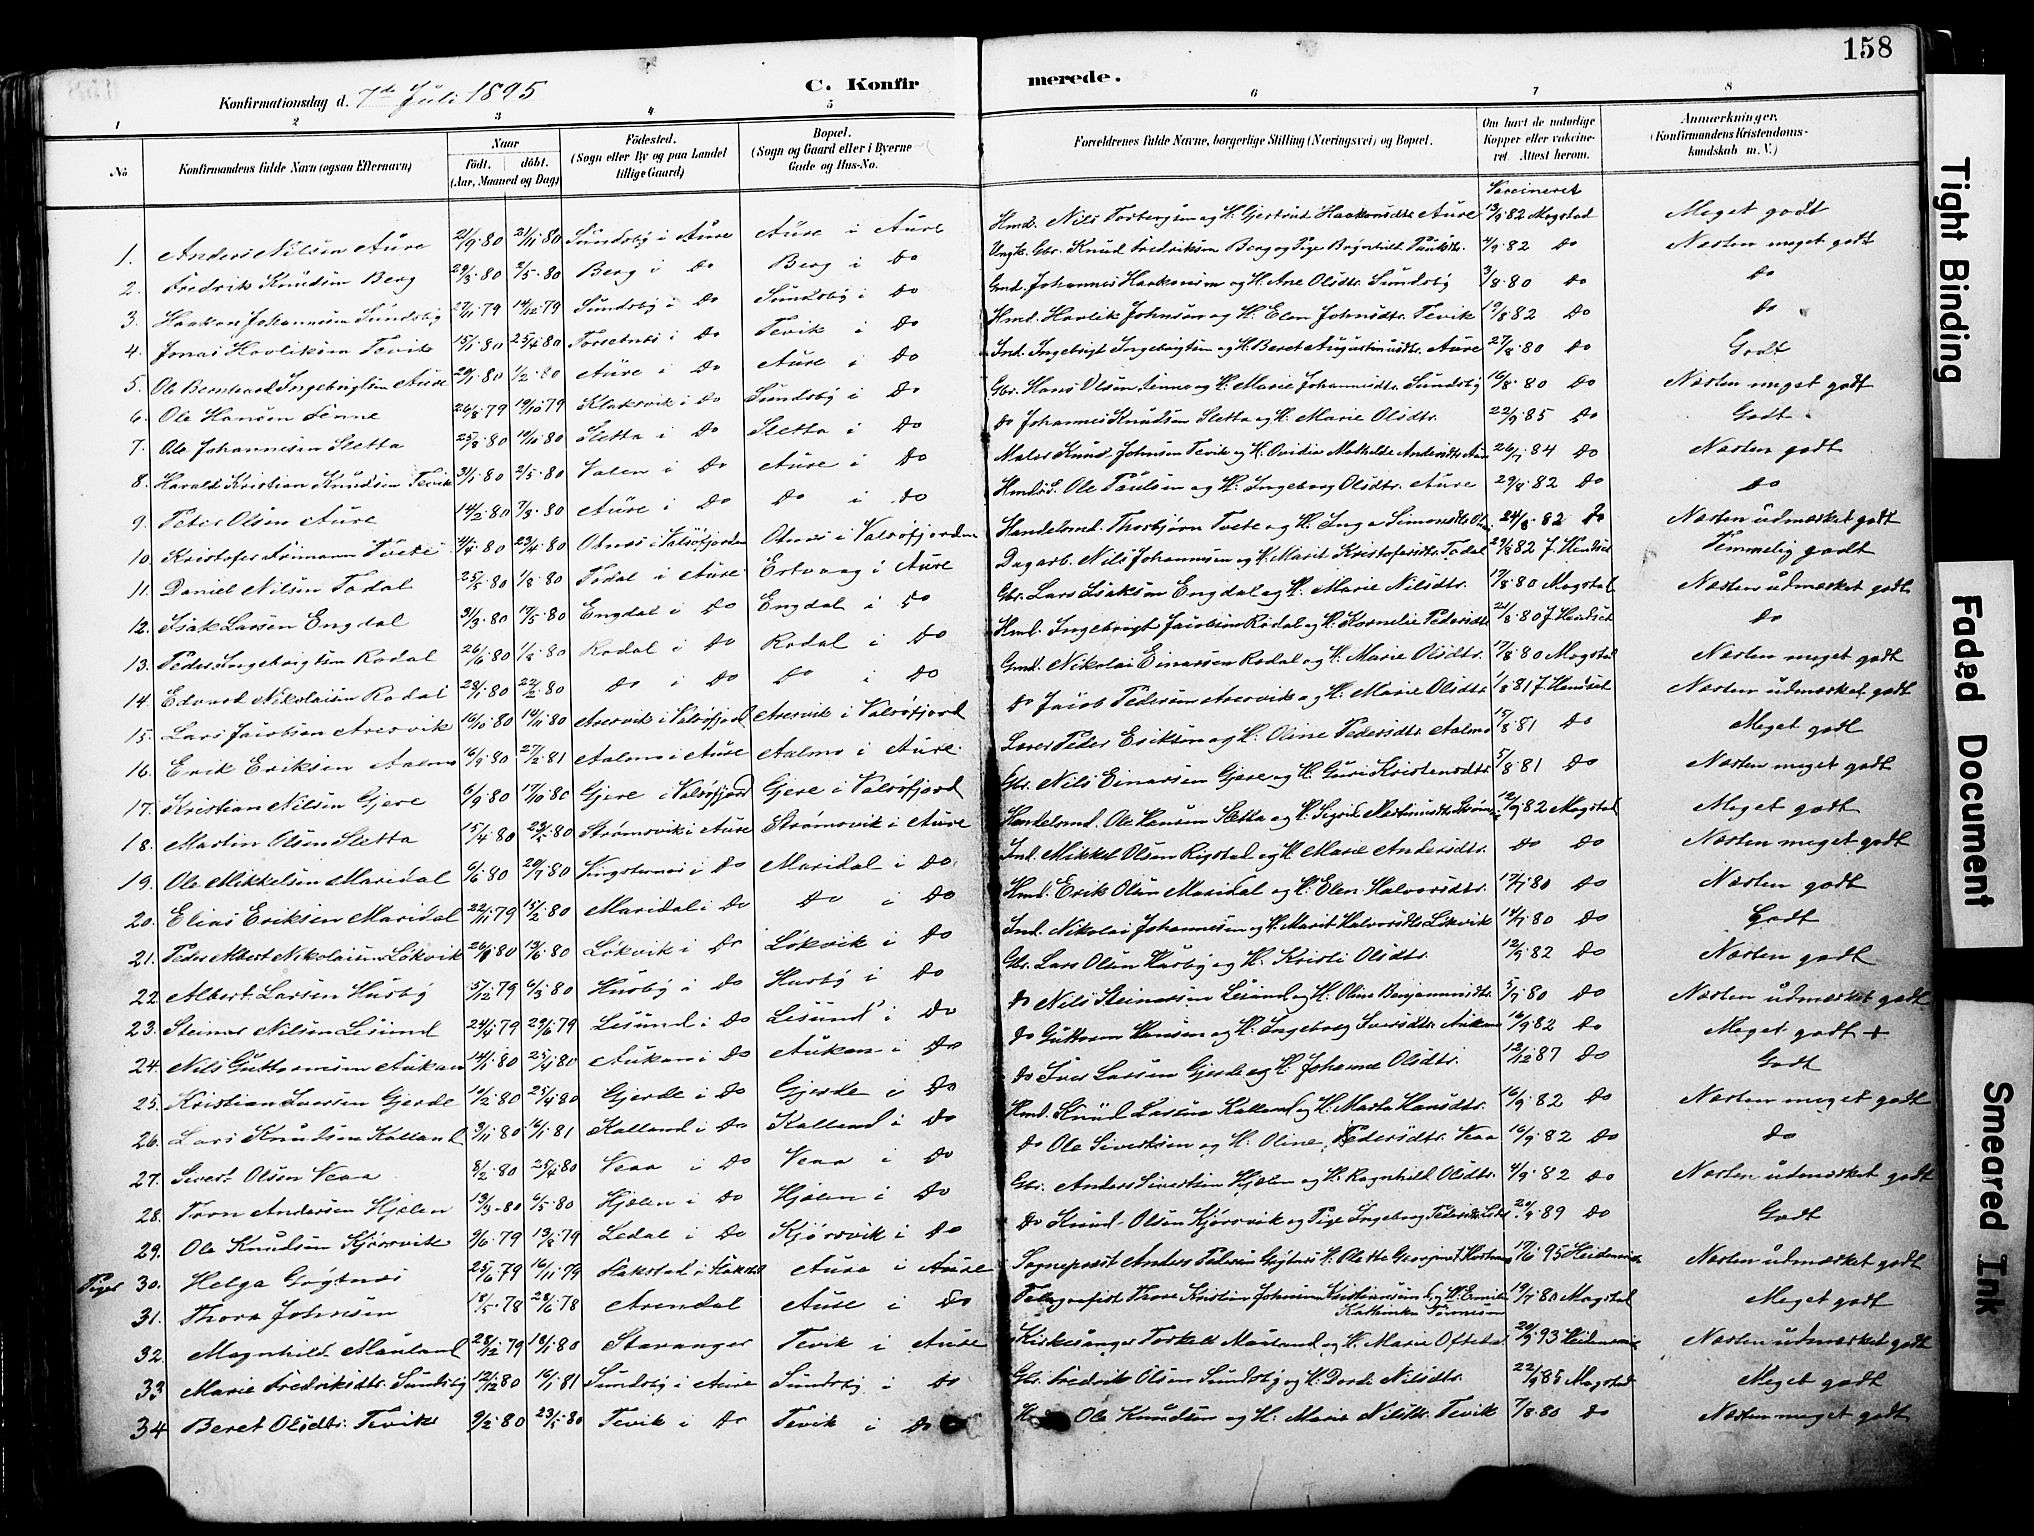 158
Konfirmationsdag d. 7de Juli 1895
C. Konfirmerede.
1 2 3 4 5 6 7 8
No
Konfirmandens fulde Navn (ogsaa Efternavn)
Naar født. døbt. (Aar, Maaned og Dag)
Fødested. (Sogn eller By og paa Landet tillige Gaard)
Bopæl. (Sogn og Gaard eller i Byerne Gade og Hus-No.
Forældrenes fulde Navne, borgerlige Stilling (Næringsvei) og Bopæl.
Om havt de naturlige Kopper eller vakcineret. Attest herom.
Anmærkninger. (Konfirmandens Kristendomskundskab m. V.)
Vaccineret
1. Anders Nilsen Aure 21/9 80 21/11 80 Sundsby i Aure Aure i Aure Hmd. Nils Torbergsen og H. Gjertrud Haakonsdtr. Aure 13/9 82 Mogstad Meget godt
2. Fredrik Knudsen Berg 29/3 80 2/5 80 Berg i Do Berg i Do Ungk. Gbr. Knud Fredriksen Berg og Pige Ragnhild Paulsdtr. 4/9 82 Do Næsten meget godt
3. Haakon Johannesen Sundsby 27/11 79 14/12 79 Sundsby i Do Sundsby i Do Gmd. Johannes Haakonsen og H. Ane Olsdtr. Sundsby 3/8 80 Do Do
4. Jonas Havliksen Tevik 15/1 80 25/4 80 Torsetnes i Do Tevik i Do Hmd. Havlik Johnsen og H. Elen Johnsdtr. Tevik 19/8 82 Do Do
5. Ole Berntinus Ingebrigtsen Aure 20/1 80 1/2 80 Aure i Do Aure i Do Ind. Ingebrigt Ingebrigtsen og H. Beret Augustinusdtr. Aure 27/8 80 Do Godt
6. Ole Hansen Linne 26/8 79 19/10 79 Klaksvik i Do Sundsby i Do Gbr. Hans Olsen Linne og H. Marie Johannesdtr. Sundsby 16/8 80 Do Næsten meget godt
7. Ole Johannesen Sletta 25/8 80 10/10 80 Sletta i Do Sletta i Do Do Johannes Knudsen Sletta og H. Marie Olsdtr. 22/9 85 Do Godt
8. Harald Kristian Knudsen Tevik 31/1 80 2/5 80 Valen i Do Aure i Do Maler Knud Johnsen Tevik og H. Ovidia Mathilde Andersdtr. Aure 26/7 84 Do Næsten godt
9. Peter Olsen Aure 14/2 80 7/3 80 Aure i Do Do i Do Hmds. Ole Paulsen og H. Ingeborg Olsdtr. Aure 29/8 82 Do Do
10. Kristofer Tveite 4/4 80 23/4 80 Otnes i Valsøfjorden Otnes i Valsøfjorden Handelsmd. Thorbjørn Tvete og H. Inga Simonsdtr. 24/8 82 Do Næsten udmærket godt
11. Daniel Nilsen Todal 25/5 80 1/8 80 Todal i Aure Ertvaag i Aure Dagarb. Nils Johannesen og H. Marit Kristofersdtr. Todal 29/8 82 J. Hendset Temmelig godt
12. Isak Larsen Engdal 31/3 80 17/5 80 Engdal i Do Engdal i Do Gbr. Lars Isaksen Engdal og H. Marie Nilsdtr. 17/8 80 Mogstad Næsten udmærket godt
13. Peder Ingebrigtsen Rodal 26/6 80 1/8 80 Rodal i Do Rodal i Do Hmd. Ingebrigt Jacobsen Rodal og H. Kornelia Pedersdtr. 21/8 80 J. Hendset Do
14. Edvard Nikolaisen Rodal 28/1 80 22/2 80 Do i Do Do i Do Gmd. Nikolai Einarsen Rodal og H. Marie Olsdtr. 17/8 80 Mogstad Næsten meget godt
15. Lars Jacobsen Aresvik 16/10 80 14/11 80 Aresvik i Valsøfjord Aresvik i Valsøfjord Do Jacob Pedersen Aresvik og H. Marie Olsdtr. 1/8 81 J. Hendset Næsten udmærket godt
16. Erik Eriksen Aalmo 16/9 80 27/2 81 Aalmo i Aure Aalmo i Aure Lærer Peder Eriksen og H. Oline Pedersdtr. Aalmo 15/8 81 Do Meget godt
17. Kristian Nilsen Gjere 6/9 80 17/10 80 Gjere i Valsøfjord Gjere i Valsøfjord Gbr. Nils Einarsen Gjere og H. Guri Kristensdtr. 5/8 81 Do Næsten meget godt
18. Martin Olsen Sletta 15/4 80 23/5 80 Strømsvik i Aure Strømsvik i Aure Handelsmd. Ole Hansen Sletta og H. Sigrid Martinusdtr. 12/9 82 Mogstad Meget godt
19. Ole Mikkelsen Maridal 6/6 80 20/7 80 Kingsternes i Do Maridal i Do Ind. Mikkel Olsen Rigstad og H. Marie Andersdtr. Do Do Næsten meget godt
20. Elias Eriksen Maridal 22/11 79 15/2 80 Maridal i Do Do i Do Hmd. Erik Olsen Maridal og H. Elen Halvorsdtr. 17/7 80 Do Næsten godt
21. Peder Albert Nikolaisen Løkvik 26/4 80 13/6 80 Løkvik i Do Løkvik i Do Ind. Nikolai Johannesen og H. Marit Halvorsdtr. Løkvik 14/9 80 Do Godt
22. Albert Larsen Husby 5/12 79 6/3 80 Husby i Do Husby i Do Gbr. Lars Olsen Husby og H. Kristi Olsdtr. 12/9 82 Do Næsten godt
23. Steiner Nilsen Lesund 24/4 79 29/6 79 Lesund i Do Lesund i Do Do Nils Steinersen Lesund og H. Oline Benjaminsdtr. 5/7 80 Do Næsten udmærket godt
24. Nils Guttormsen Aukan 14/1 80 25/4 80 Aukan i Do Aukan i Do Do Guttorm Hansen og H. Ingeborg Iversdtr. Aukan 16/9 82 Do Meget godt +
25. Kristian Iversen Gjerde 10/2 80 25/4 80 Gjerde i Do Gjerde i Do Do Iver Larsen Gjerde og H. Johanna Olsdtr. 12/12 87 Do Godt
26. Lars Knudsen Kalland 3/11 80 16/1 81 Kalland i Do Kalland i Do Hmd. Knud Larsen Kalland og H. Marta Hansdtr. 16/9 82 Do Næsten meget godt
27. Sivert Olsen Veaa 8/2 80 25/4 80 Veaa i Do Veaa i Do Do Ole Sivertsen og H. Oline Pedersdtr. Veaa 16/9 82 Do Do
28. Tron Andersen Hjelen 13/3 80 6/5 80 Hjelen i Do Hjelen i Do Gbr. Anders Sivertsen Hjelen og H. Ragnhild Olsdtr. 4/9 82 Do Næsten udmærket godt
29. Ole Knudsen Kjørsvik 9/6 79 13/8 79 Ledal i Do Kjørsvik i Do Do Knud Olsen Kjørsvik og Pige Ingeborg Pedersdtr. 20/9 89 Do Godt
Piger 30. Helga Grøtnes 25/6 79 16/11 79 Flakstad i Flakstad Aure i Aure Sogneprest Anders Pedersen Grøtnes H. Olette Georgine 17/6 95 Heidenreich Næsten udmærket godt
31. Thora Johnsen 18/5 78 28/6 78 Arendal Aure i Do Telegrafist Tore Kristen Johnsen Kristiansund og H. Emilie Kathinka Tønnesen 19/7 80 Mogstad Meget godt
32. Magnhild Mauland 28/12 79 18/1 80 Stavanger Tevik i Aure Kirkesanger Torkell Mauland og H. Marie Oftedal 20/9 93 Heidenreich Næsten udmærket godt
33 Marie Fredriksdtr. Sundsby 12/12 80 16/1 81 Sundsby i Aure Sundsby i Do Gbr. Fredrik Olsen Sundsby og H. Dordi Nilsdtr. 22/9 85 Mogstad Meget godt
34 Beret Olsdtr. Tevik 9/2 80 23/5 80 Tevik i Do Tevik i Do Ole Knudsen og H. Marie Nilsdtr. Tevik 7/8 80 Do Næsten meget godt
Tight Binding
Faded Document
Smeared Ink